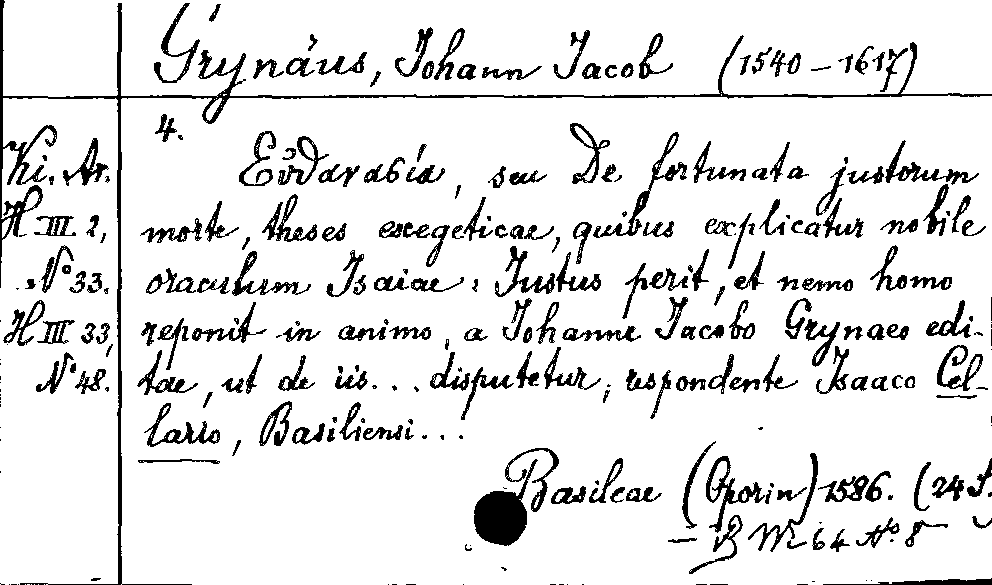 Grynäus, Johann Jacob (1540-1617)
4.
Ki. Ar.
H III 2,
No 33.
H III 33,
No 48.
seu De fortunata justorum
morte, theses exegeticae, quibus explicatur nobile
oraculum Isaiae: Justus perit, et nemo homo
reponit in animo, a Johanne Jacobo Grynaeo edi-
tae, ut de iis... disputetur, respondente Isaaco Cel-
lario, Basiliensi...
Basileae (Oporin) 1586. (24 S.
No. 8